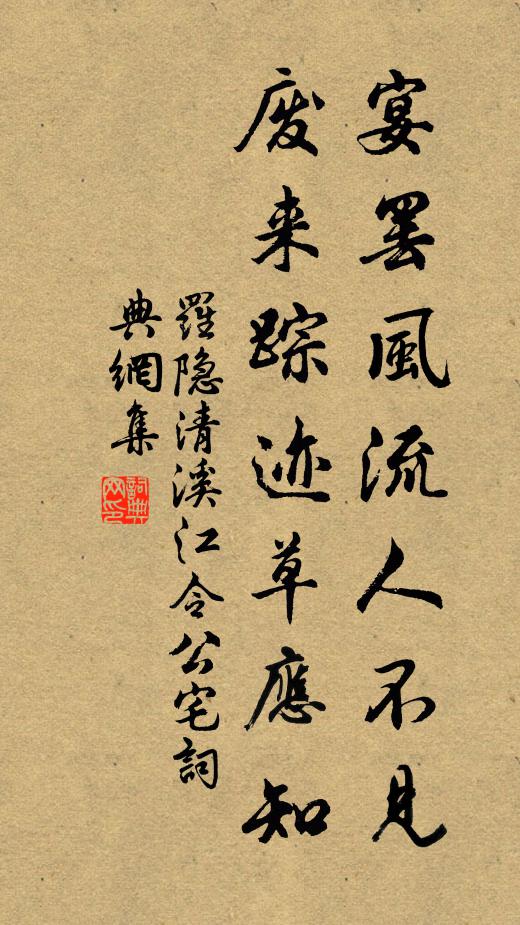 宴罢風流人不見
废来踪迹草應知
羅隐清溪江令公宅詞
典網集
詞典网印